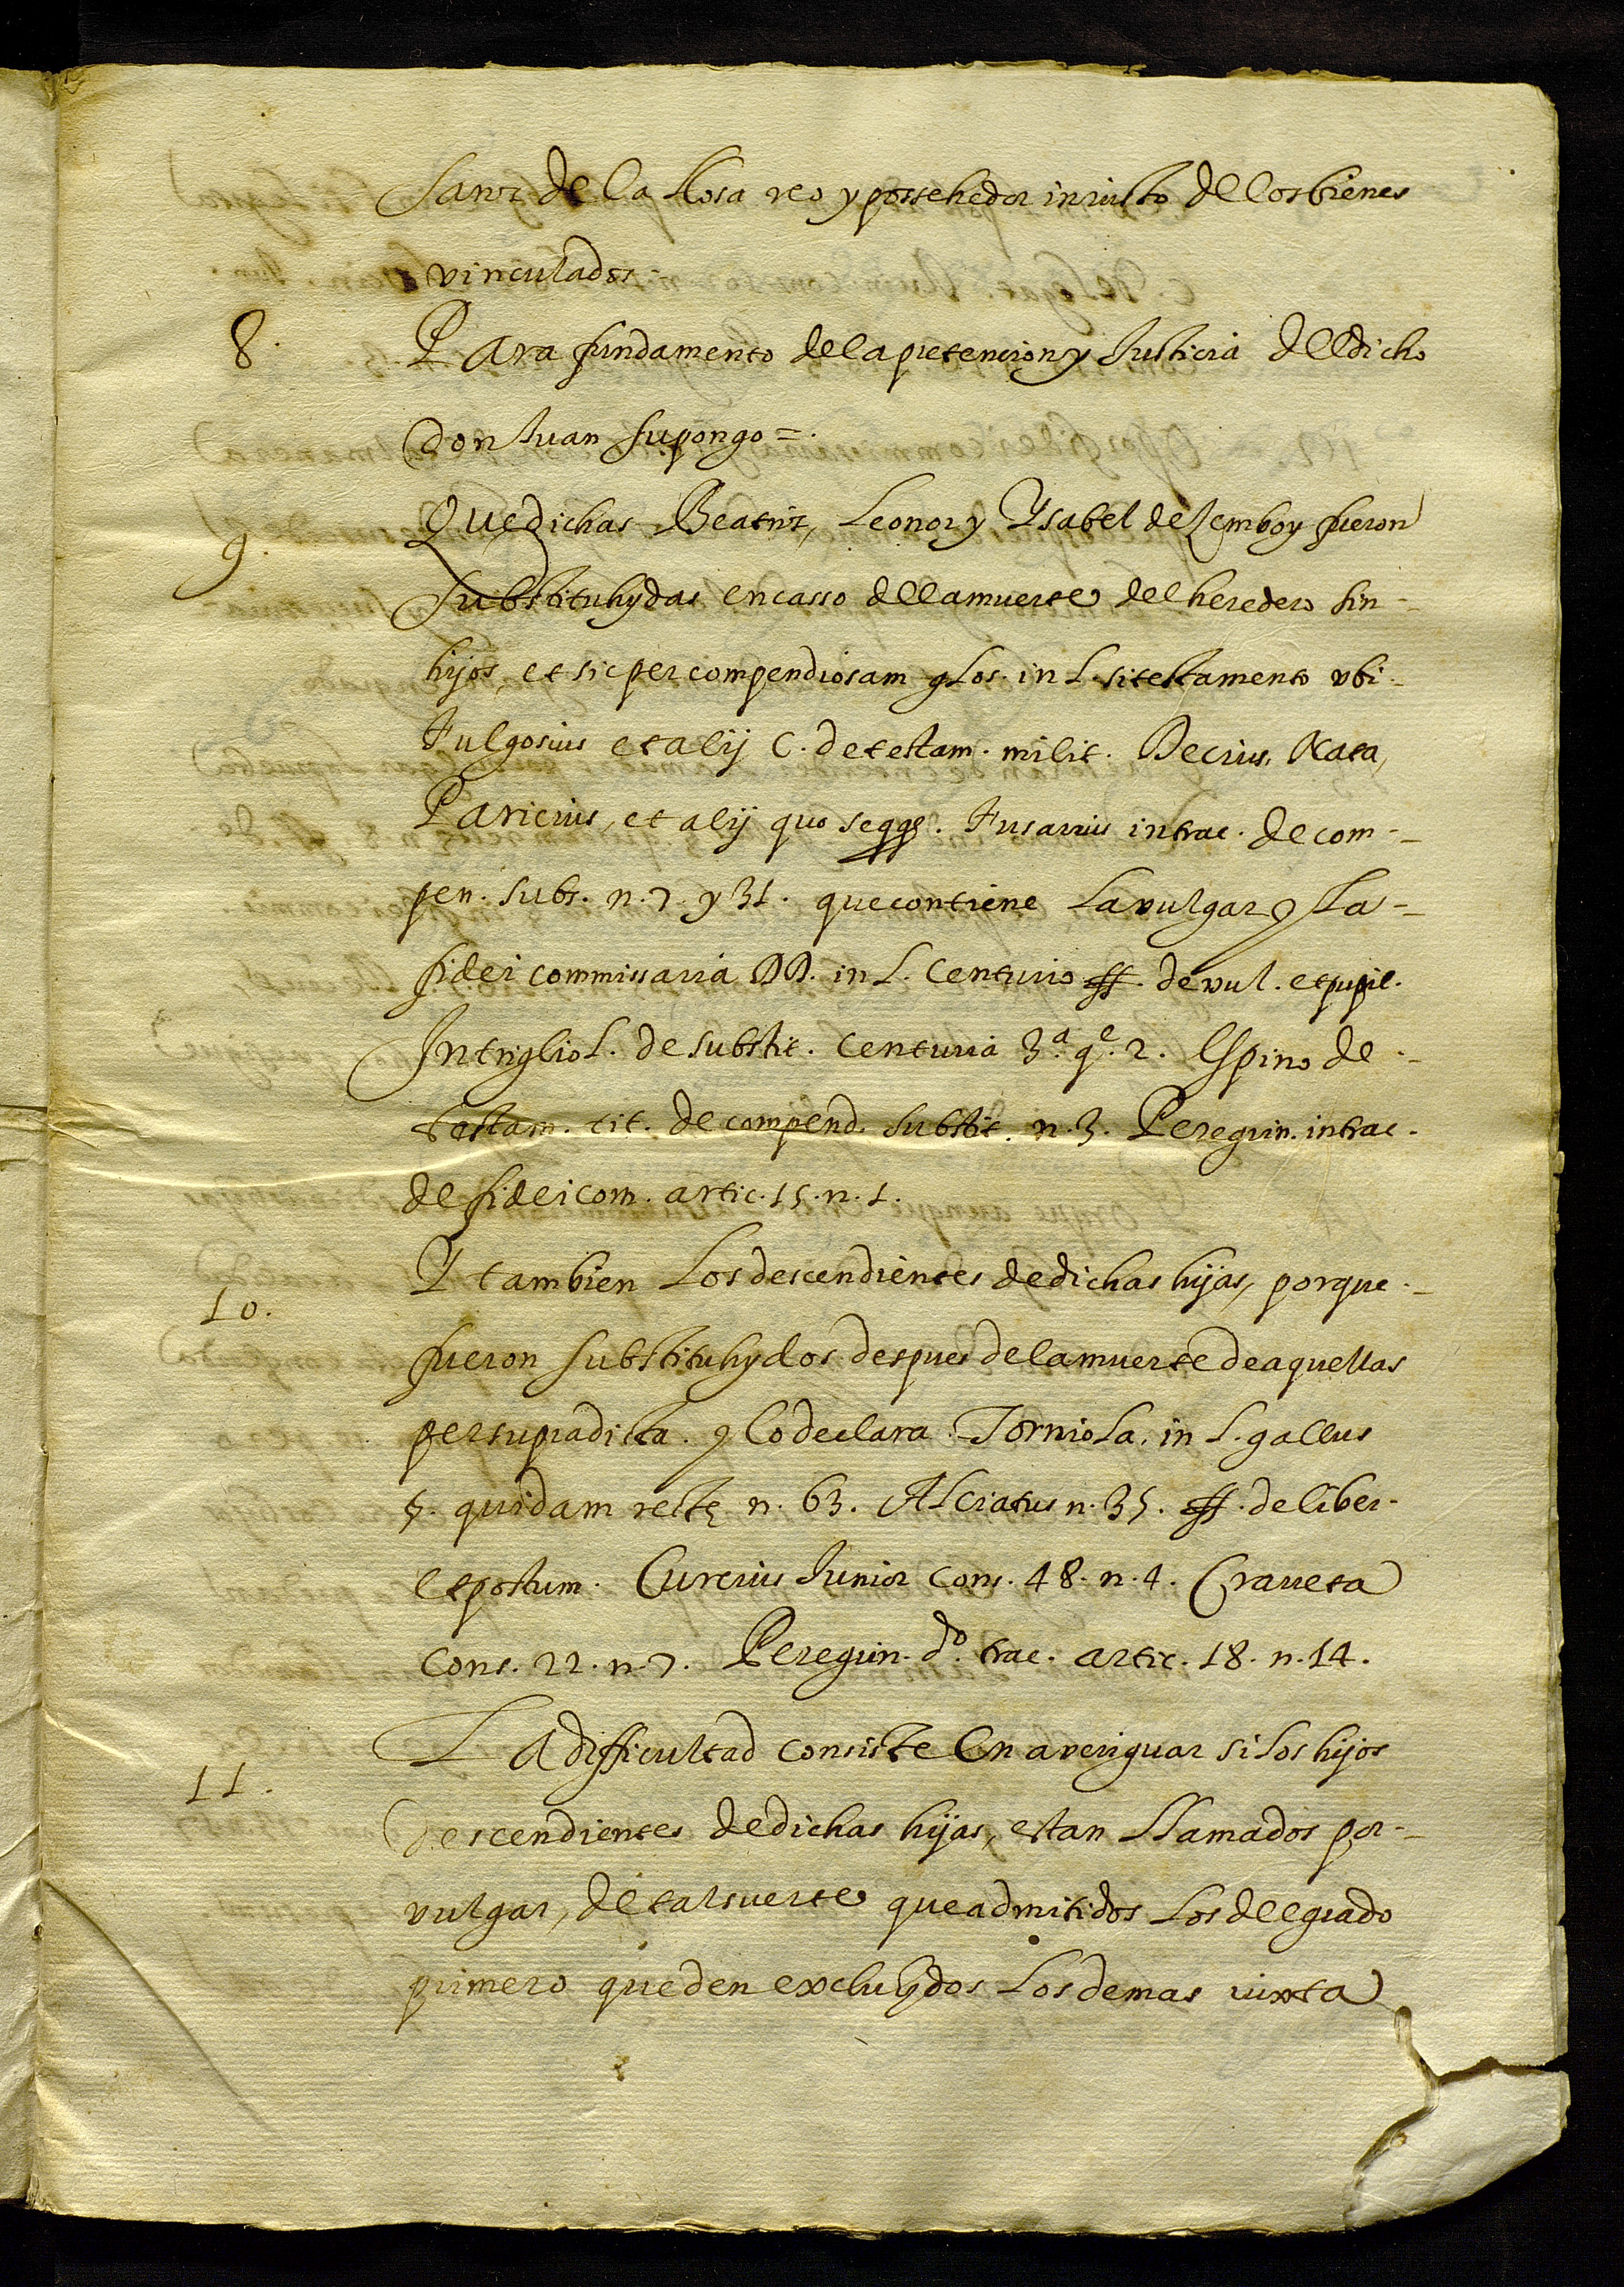 Sanz de la Llosa reo y possehedor iniusto de los bienes
vinculados.
8. Para fundamento de la pretencion y Justicia del dicho
don Juan supongo =.
9. Que dichas Beatriz, Leonor y Ysabel de Zemboy fueron
substituhydas en casso de la muerte del heredero sin
hijos, et sic per compendiosam glos. in L. si testamento ubi
Fulgosius et alij C. de testam. milit. Decius, Nata,
Paricius, et alij quo seqq. Fusarius in trac. de com-
pen. subs. n. 7. y 31. que contiene la vulgar y la
fidei commissaria DD. in L. Centurio ff. de vul. et pupil.
Intrigliol. de substit. Centuria 3ª. qe. 2. Espino de
testam. tit. de compend. substit. n. 3. Peregrin. in trac.
de fideicom. artic. 15. n. 1.
10. Y tambien los descendientes de dichas hijas, porque
fueron substituhydos despues de la muerte de aquellas
per supradicta. y lo declara Torniola. in L. gallus
§. quidam recte n. 63. Alciatus n. 35. ff. de liber.
et postum. Curcius Junior Cons. 48. n. 4. Craveta
Cons. 22. n. 7. Peregrin. do. trac. artic. 18. n. 14.
11. La difficultad consiste En averiguar si los hijos
descendientes de dichas hijas, estan llamados por
vulgar, de tal suerte que admitidos los del grado
primero queden excluhydos los demas iuxta